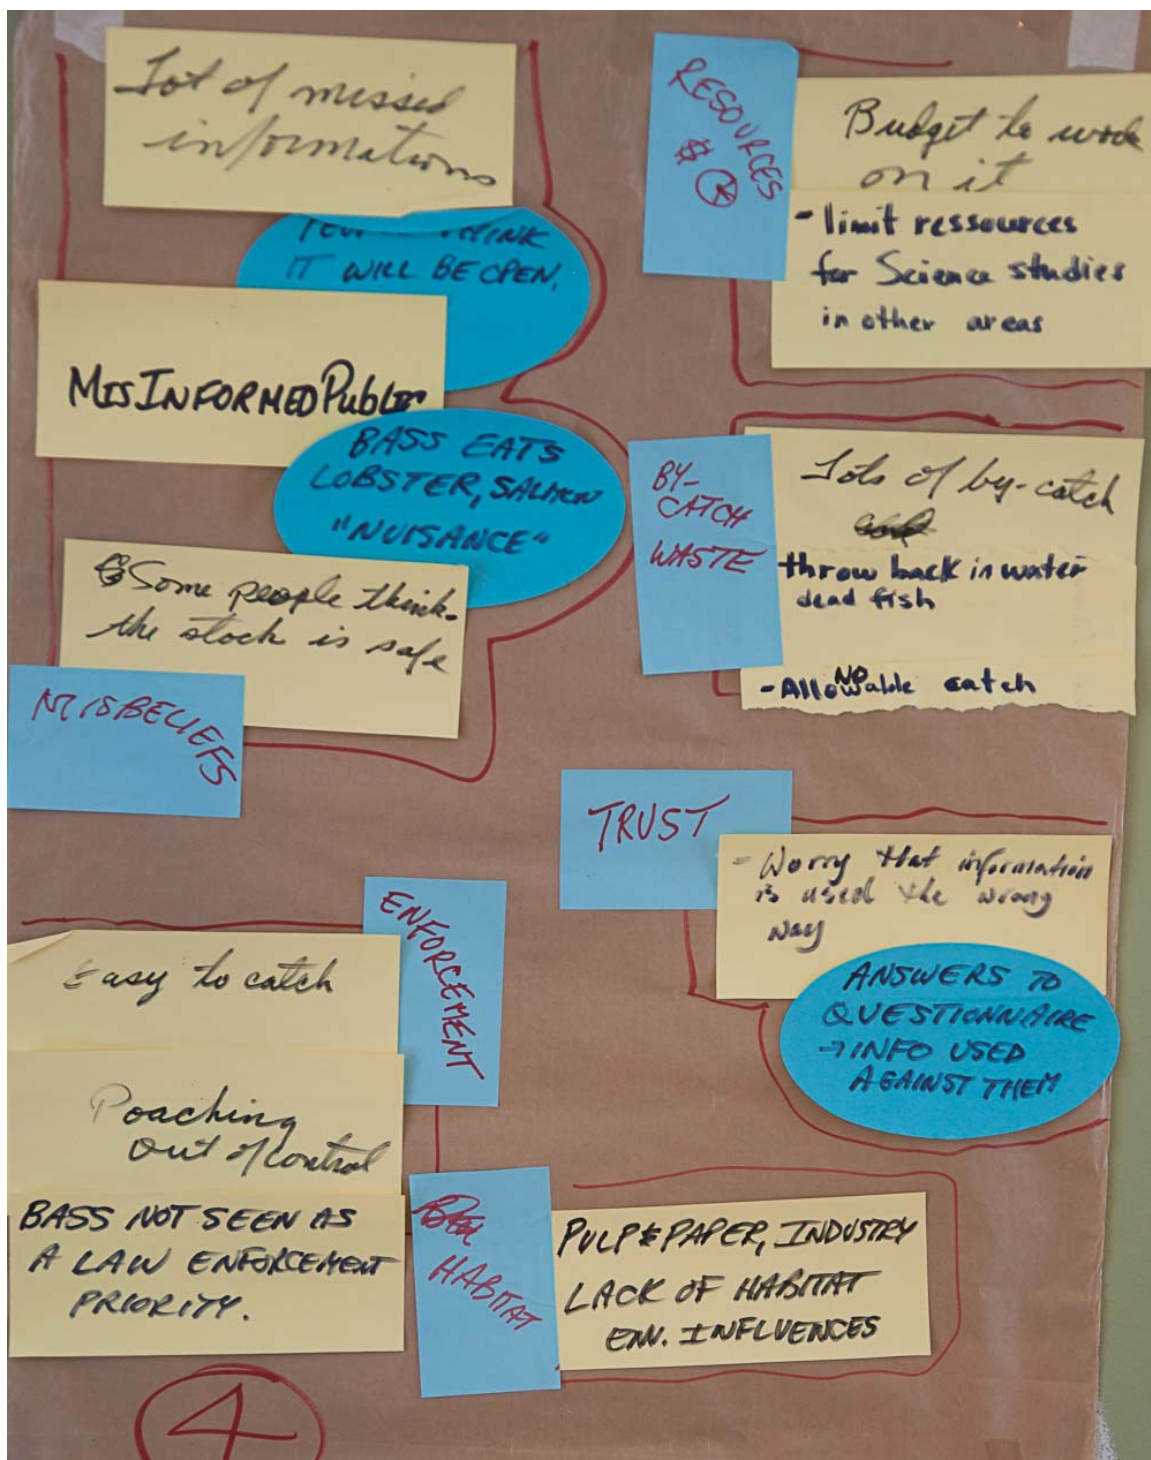 Lot of missed
informations
THINK
IT WILL BE OPEN,
MISINFORMED PUBLIC
BASS EATS
LOBSTER, SALMON
"NUISANCE"
Some people think
the stock is safe
MISBELIEFS
RESOURCES
$
Budget to work
on it
- limit ressources
for Science studies
in other areas
BY-
CATCH
WASTE
Lots of by-catch
throw back in water
dead fish
NO
- Allowable catch
TRUST
- Worry that information
is used the wrong
way
ANSWERS TO
QUESTIONNAIRE
→ INFO USED
AGAINST THEM
ENFORCEMENT
Easy to catch
Poaching
out of control
BASS NOT SEEN AS
A LAW ENFORCEMENT
PRIORITY.
HABITAT
PULP & PAPER, INDUSTRY
LACK OF HABITAT
ENV. INFLUENCES
4